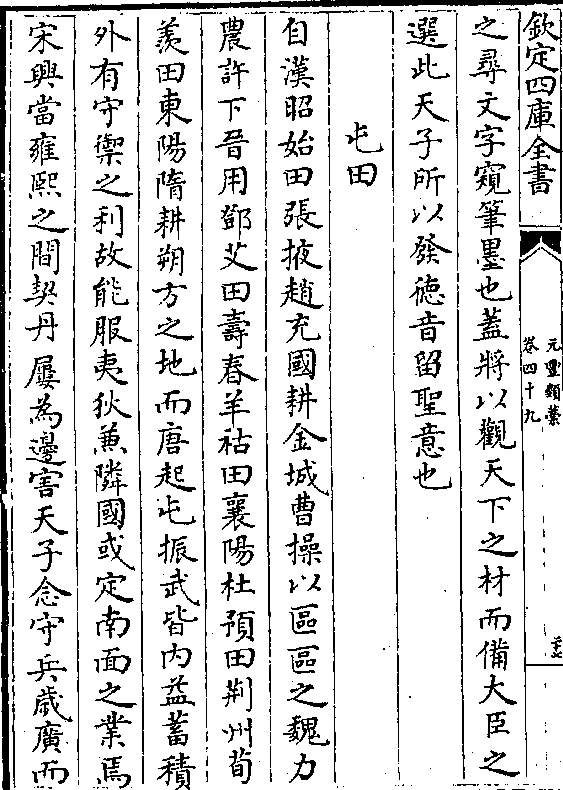 欽定四庫全書
元豐類藁
卷四十九
之尋文字窺筆墨也蓋將以觀天下之材而備大臣之
選此天子所以發德音留聖意也
屯田
自漢昭始田張掖趙充國耕金城曹操以區區之魏力
農許下晉用鄧艾田壽春羊祜田襄陽杜預田荆州荀
羨田東陽隋耕朔方之地而唐起屯振武皆内益蓄積
外有守禦之利故能服夷狄兼隣國或定南面之業焉
宋興當雍熙之間契丹屢為邊害天子念守兵歲廣而